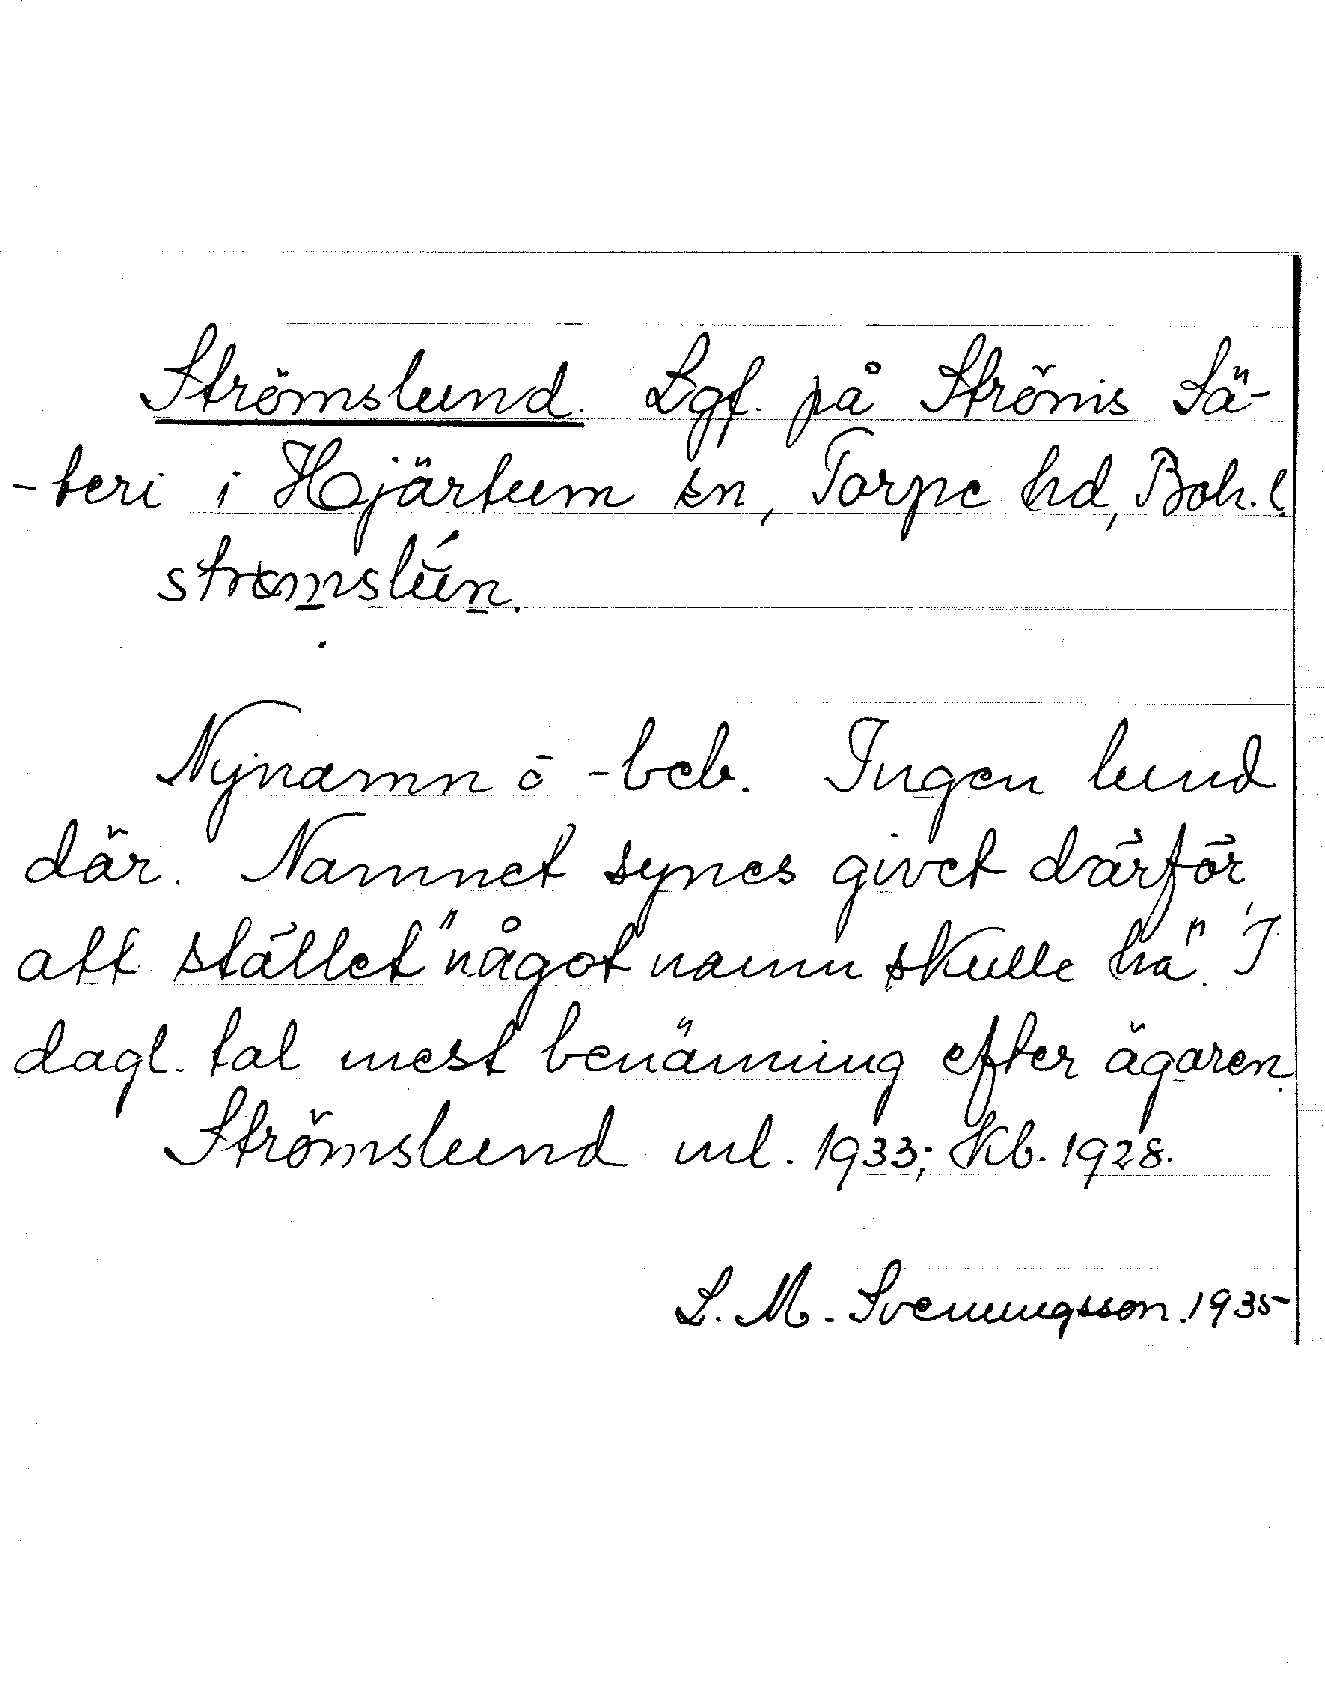 Strömslund. Lgf. på Ströms Sä-
-teri i Hjärtum sn, Torpe hd, Boh. l.
Nynamn o -beb. Ingen lund
där. Namnet synes givet därför,
att stället "något namn skulle ha". I
dagl. tal mest benämning efter ägaren.
Strömslund ml. 1933; Kb. 1928.
S. M. Svenungsson. 1935